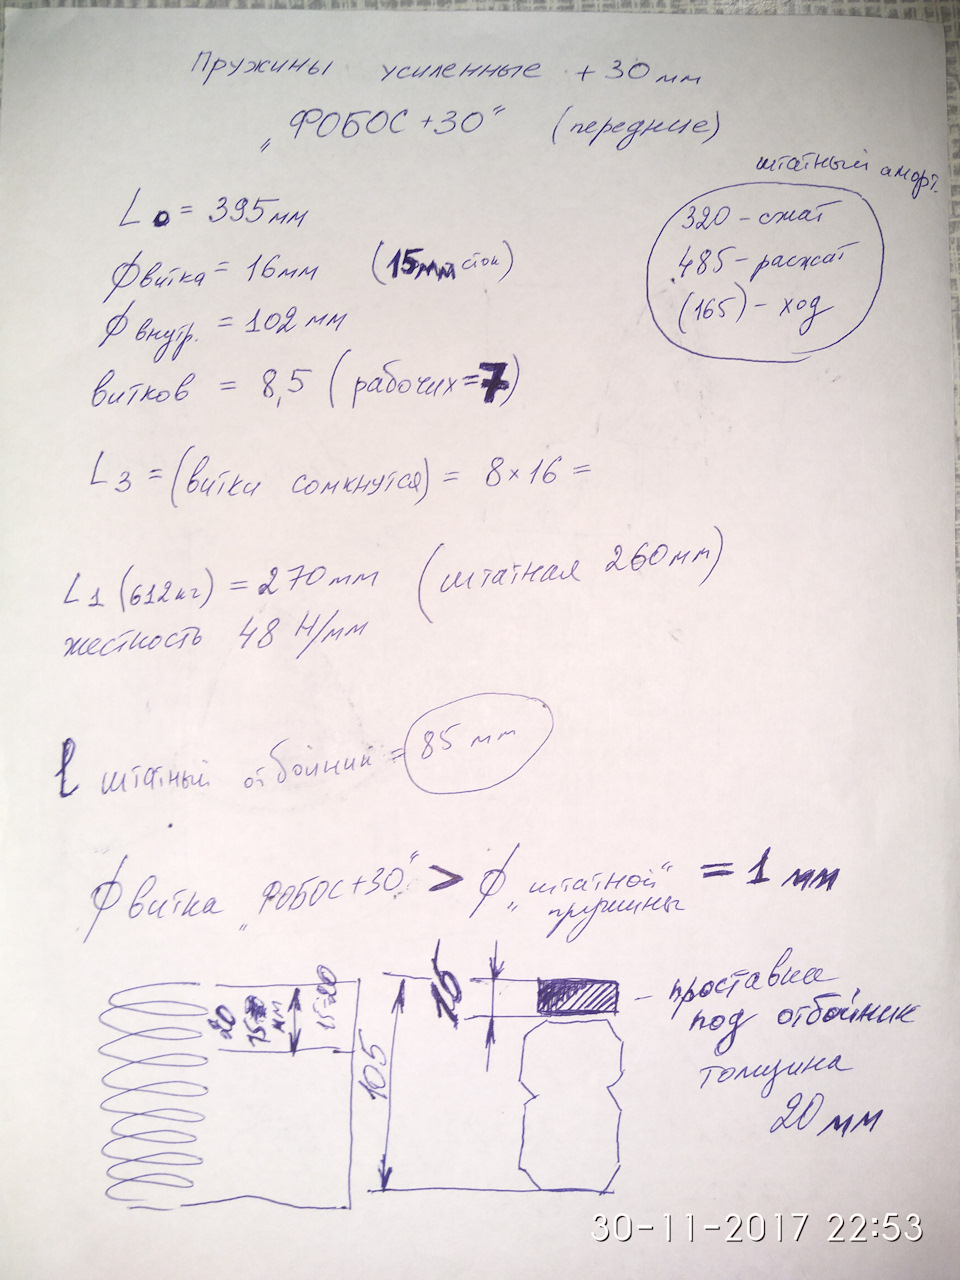 Пружины усиленные +30 мм
„ФОБОС +30“ (передние)
штатный аморт.
320 - сжат
485 - разжат
(165) - ход
L0 = 395 мм
ϕ витка = 16 мм (15мм сток)
ϕ внутр. = 102 мм
витков = 8,5 (рабочих=7)
L3 = (витки сомкнутся) = 8×16 =
L1 (612кг) = 270 мм (штатная 260 мм)
жесткость 48 Н/мм
l штатный отбойник = 85 мм
ϕ витка „ФОБОС+30“ > ϕ „штатной“ пружины = 1 мм
20
мм
15-20
105
проставка
под отбойник
толщина
20 мм
30-11-2017 22:53